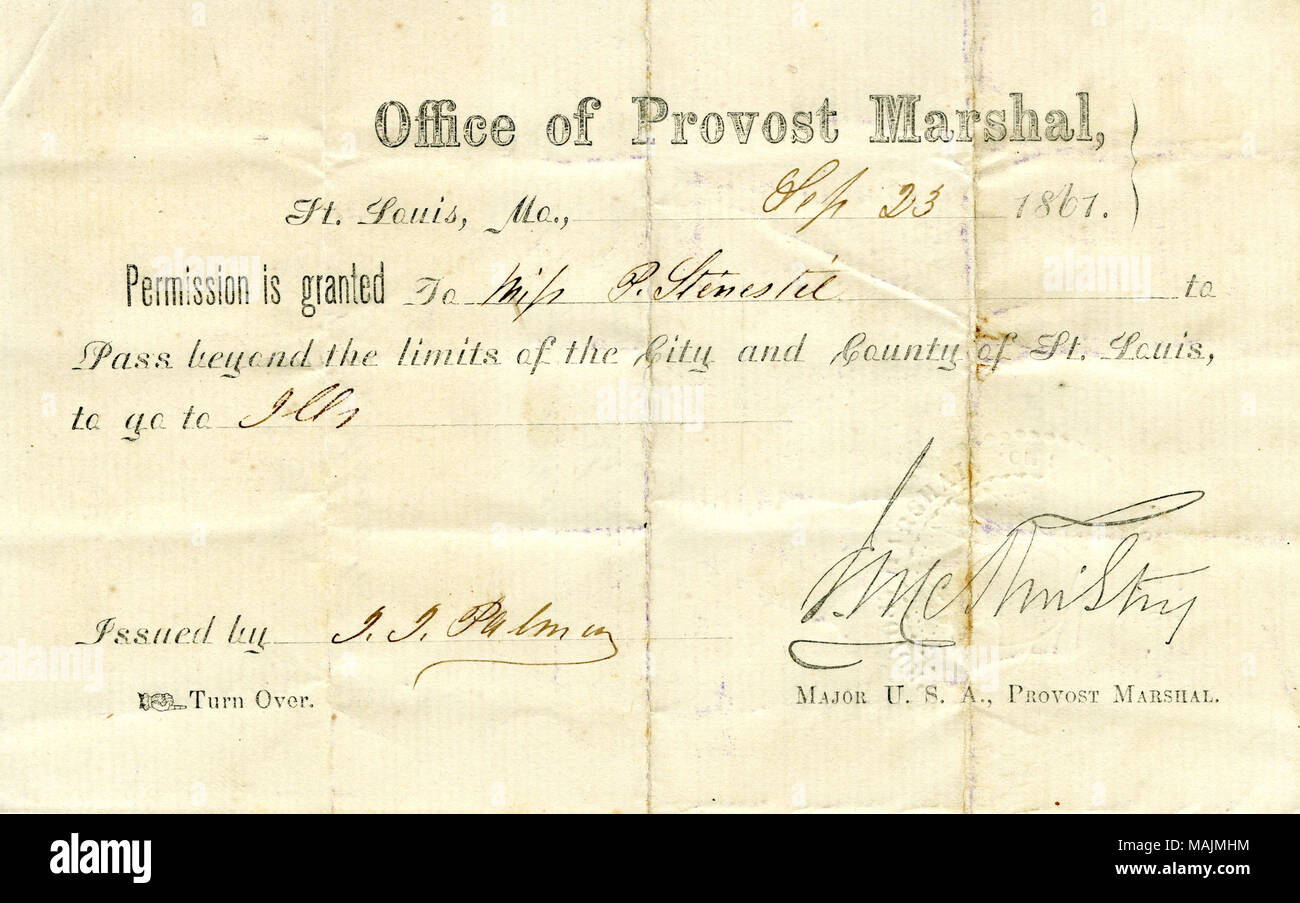 Office of Provost Marshal,
St. Louis, Mo., Sep 23 1861.
Permission is granted To Miss P. Stenestel to
Pass beyond the limits of the City and County of St. Louis,
to go to Ills
J. McKinstry
Issued by J. J. Palmer
Turn Over.
MAJOR U. S. A., PROVOST MARSHAL.
alamy
Image ID: MAJMHM
www.alamy.com